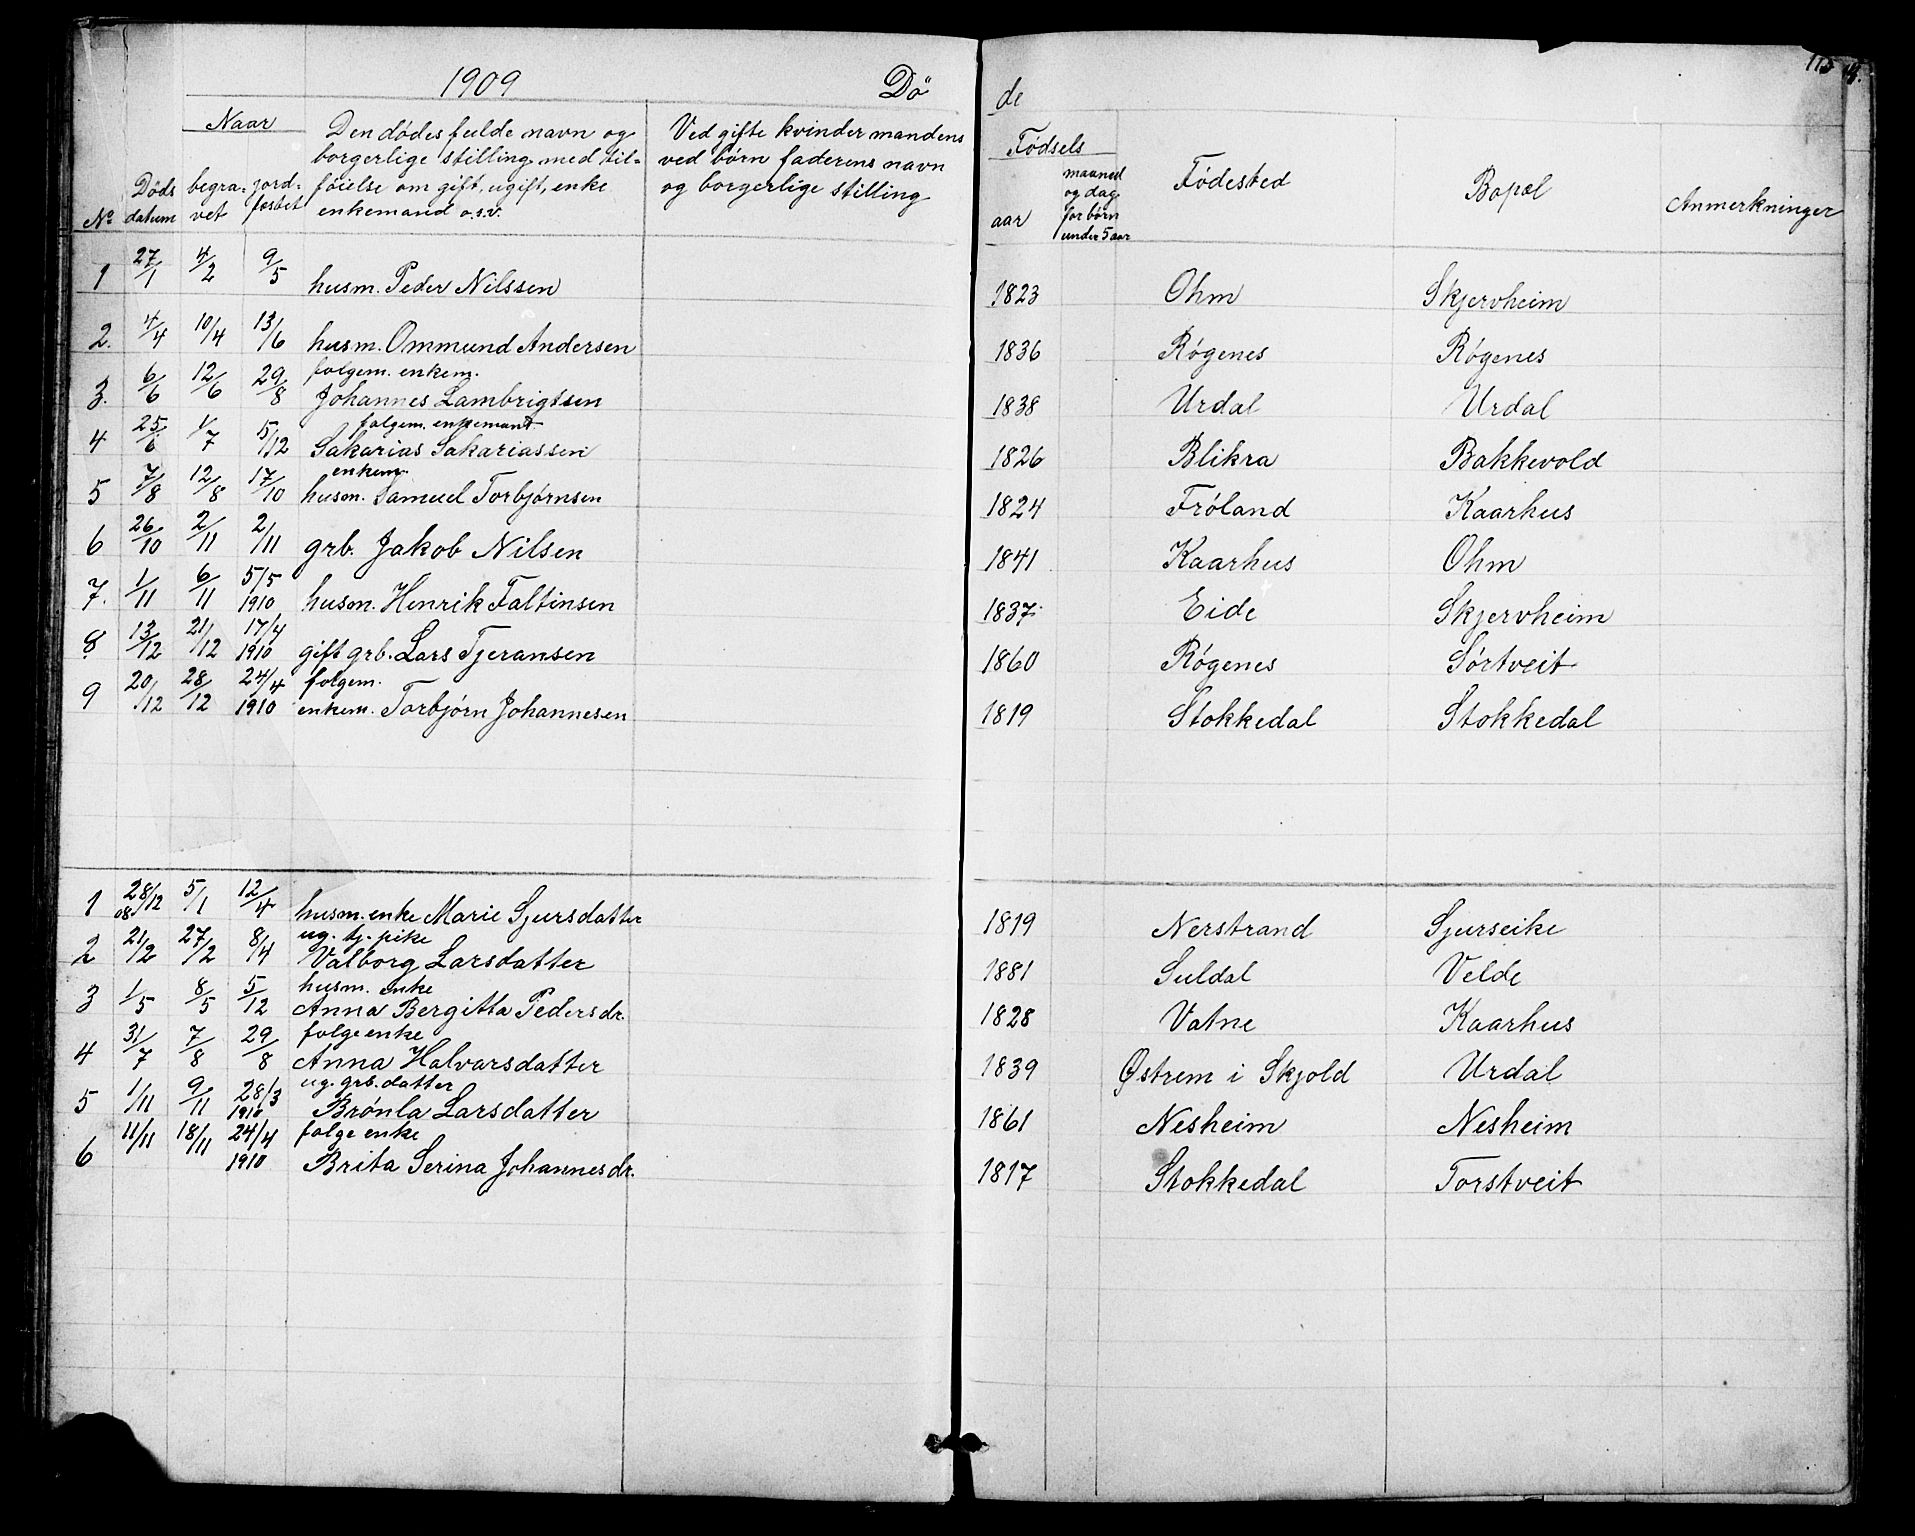 1909 Dö de 115
Naar Den dødes fulde navn og borgerlige stilling med tilføielse om gift, ugift, enke enkemand o.s.v. Ved gifte kvinder mandens ved børn faderens navn og borgerlige stilling Fødsels
No Døds datum begravet jordfæstet aar maaned og dag for børn under 5 aar Fødested Bopæl Anmerkninger
1 27/1 4/2 9/5 husm. Peder Nilssen 1823 Ohm Skjervheim
2. 4/4 10/4 13/6 husm. Ommund Andersen 1836 Røgenes Røgenes
folgem. enkem.
3. 6/6 12/6 29/8 Johannes Lambrigtsen 1838 Urdal Urdal
folgem. enkemand
4 25/6 1/7 5/12 Sakarias Sakariassen 1826 Blikra Bakkevold
enkem.
5 7/8 12/8 17/10 husm. Samuel Torbjørnsen 1824 Frøland Kaarhus
6 26/10 2/11 2/11 grb. Jakob Nilsen 1841 Kaarhus Ohm
7. 1/11 6/11 5/5 1910 husm. Henrik Faltinsen 1837 Eide Skjervheim
8 13/12 21/12 17/4 1910 gift grb. Lars Tjeransen 1860 Røgenes Sørtveit
folgem.
9 20/12 28/12 24/4 1910 enkem. Torbjørn Johannesen 1819 Stokkedal Stokkedal
1 28/12 08 5/1 12/4 husm. enke Marie Sjursdatter 1819 Nerstrand Sjurseike
ug. tj. pike
2 21/2 27/2 8/4 Valborg Larsdatter 1881 Suldal Velde
husm. enke
3 1/5 8/5 5/12 Anna Bergitta Pedersdr. 1828 Vatne Kaarhus
folge enke
4 31/7 7/8 29/8 Anna Halvarsdatter 1839 Østrem i Skjold Urdal
ug. grb. datter
5 1/11 9/11 28/3 1910 Brønla Larsdatter 1861 Nesheim Nesheim
folge enke
6 11/11 18/11 24/4 1910 Brita Serina Johannesdr. 1817 Stokkedal Torstveit